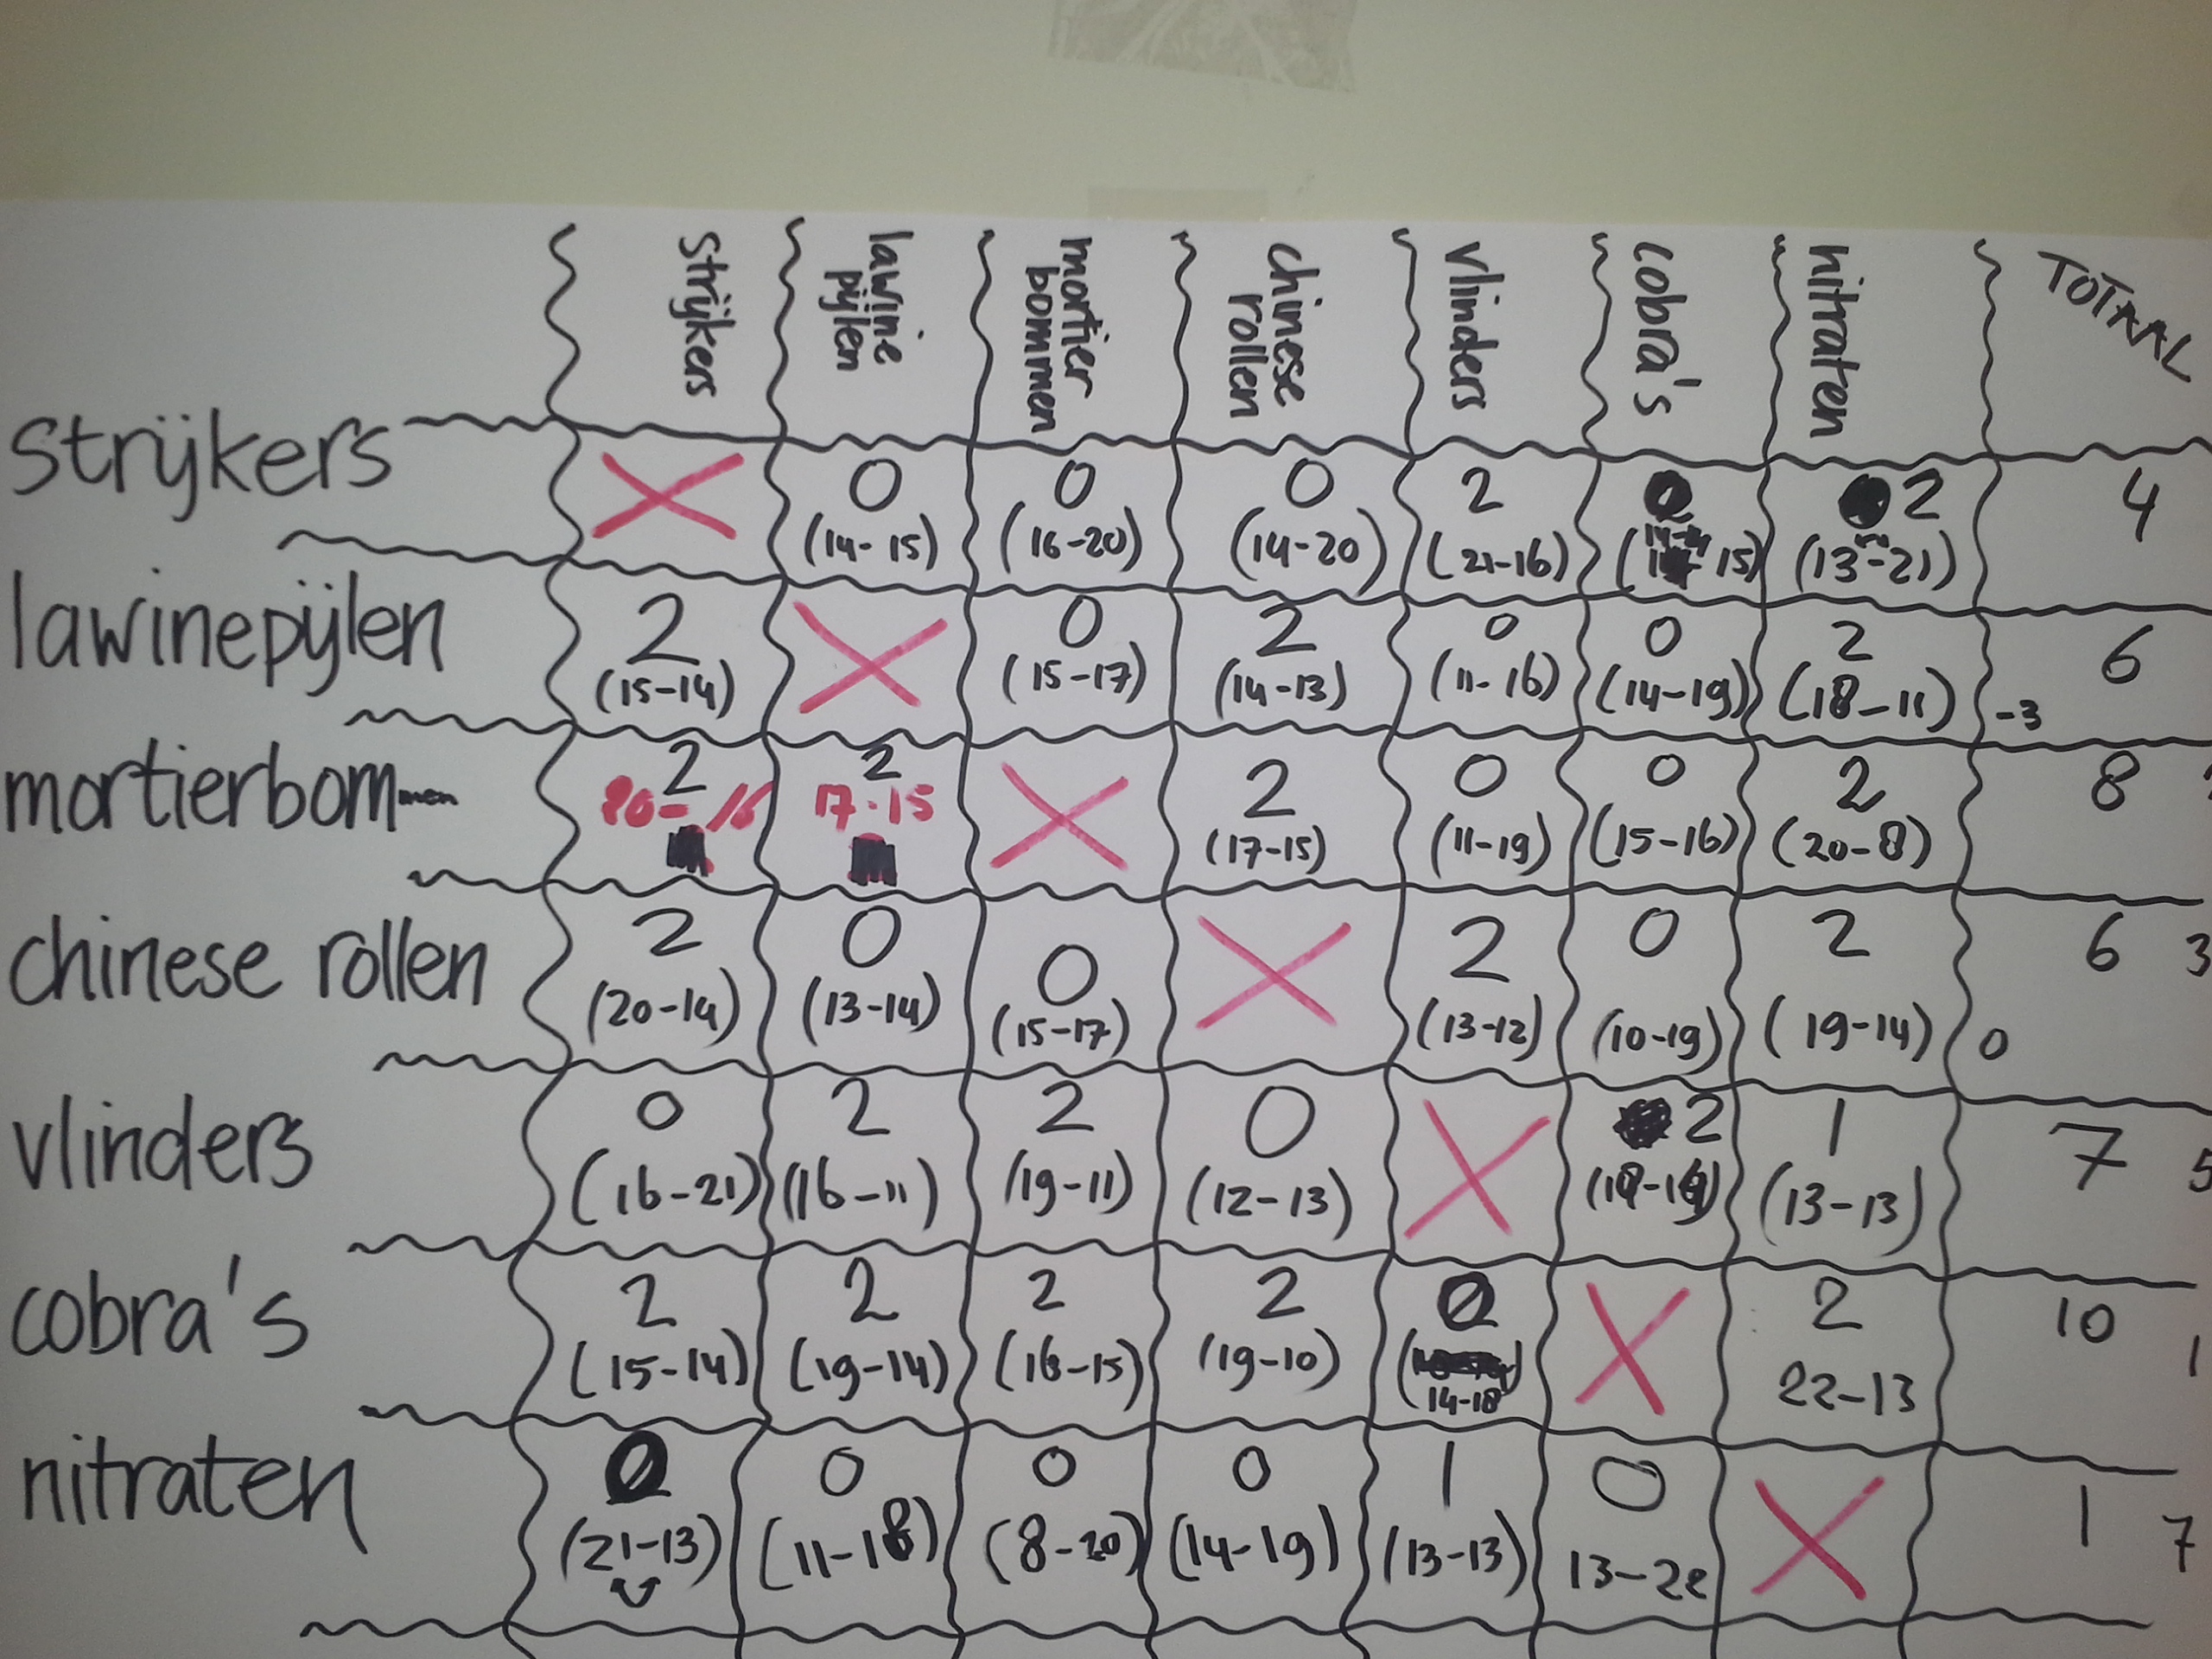 strijkers lawine pijlen mortier bommen chinese rollen vlinders cobra's nitraten TOTAAL
strijkers 0 0 0 2 0 2 4
(14-15) (16-20) (14-20) (21-16) 15) (13-21)
lawinepijlen 2 0 2 0 0 2 6
(15-14) (15-17) (14-13) (11-16) (14-19) (18-11) -3
mortierbommen 2 2 2 0 0 2 8
20-16 17-15 (17-15) (11-19) (15-16) (20-8)
chinese rollen 2 0 0 2 0 2 6 3
(20-14) (13-14) (15-17) (13-12) (10-19) (19-14) 0
vlinders 0 2 2 0 2 1 7 5
(16-21) (16-11) (19-11) (12-13) (13-13)
cobra's 2 2 2 2 0 2 10 1
(15-14) (19-14) (16-15) (19-10) 14-18 22-13
nitraten 0 0 0 0 1 0 1 7
(21-13) (11-18) (8-20) (14-19) (13-13) 13-22